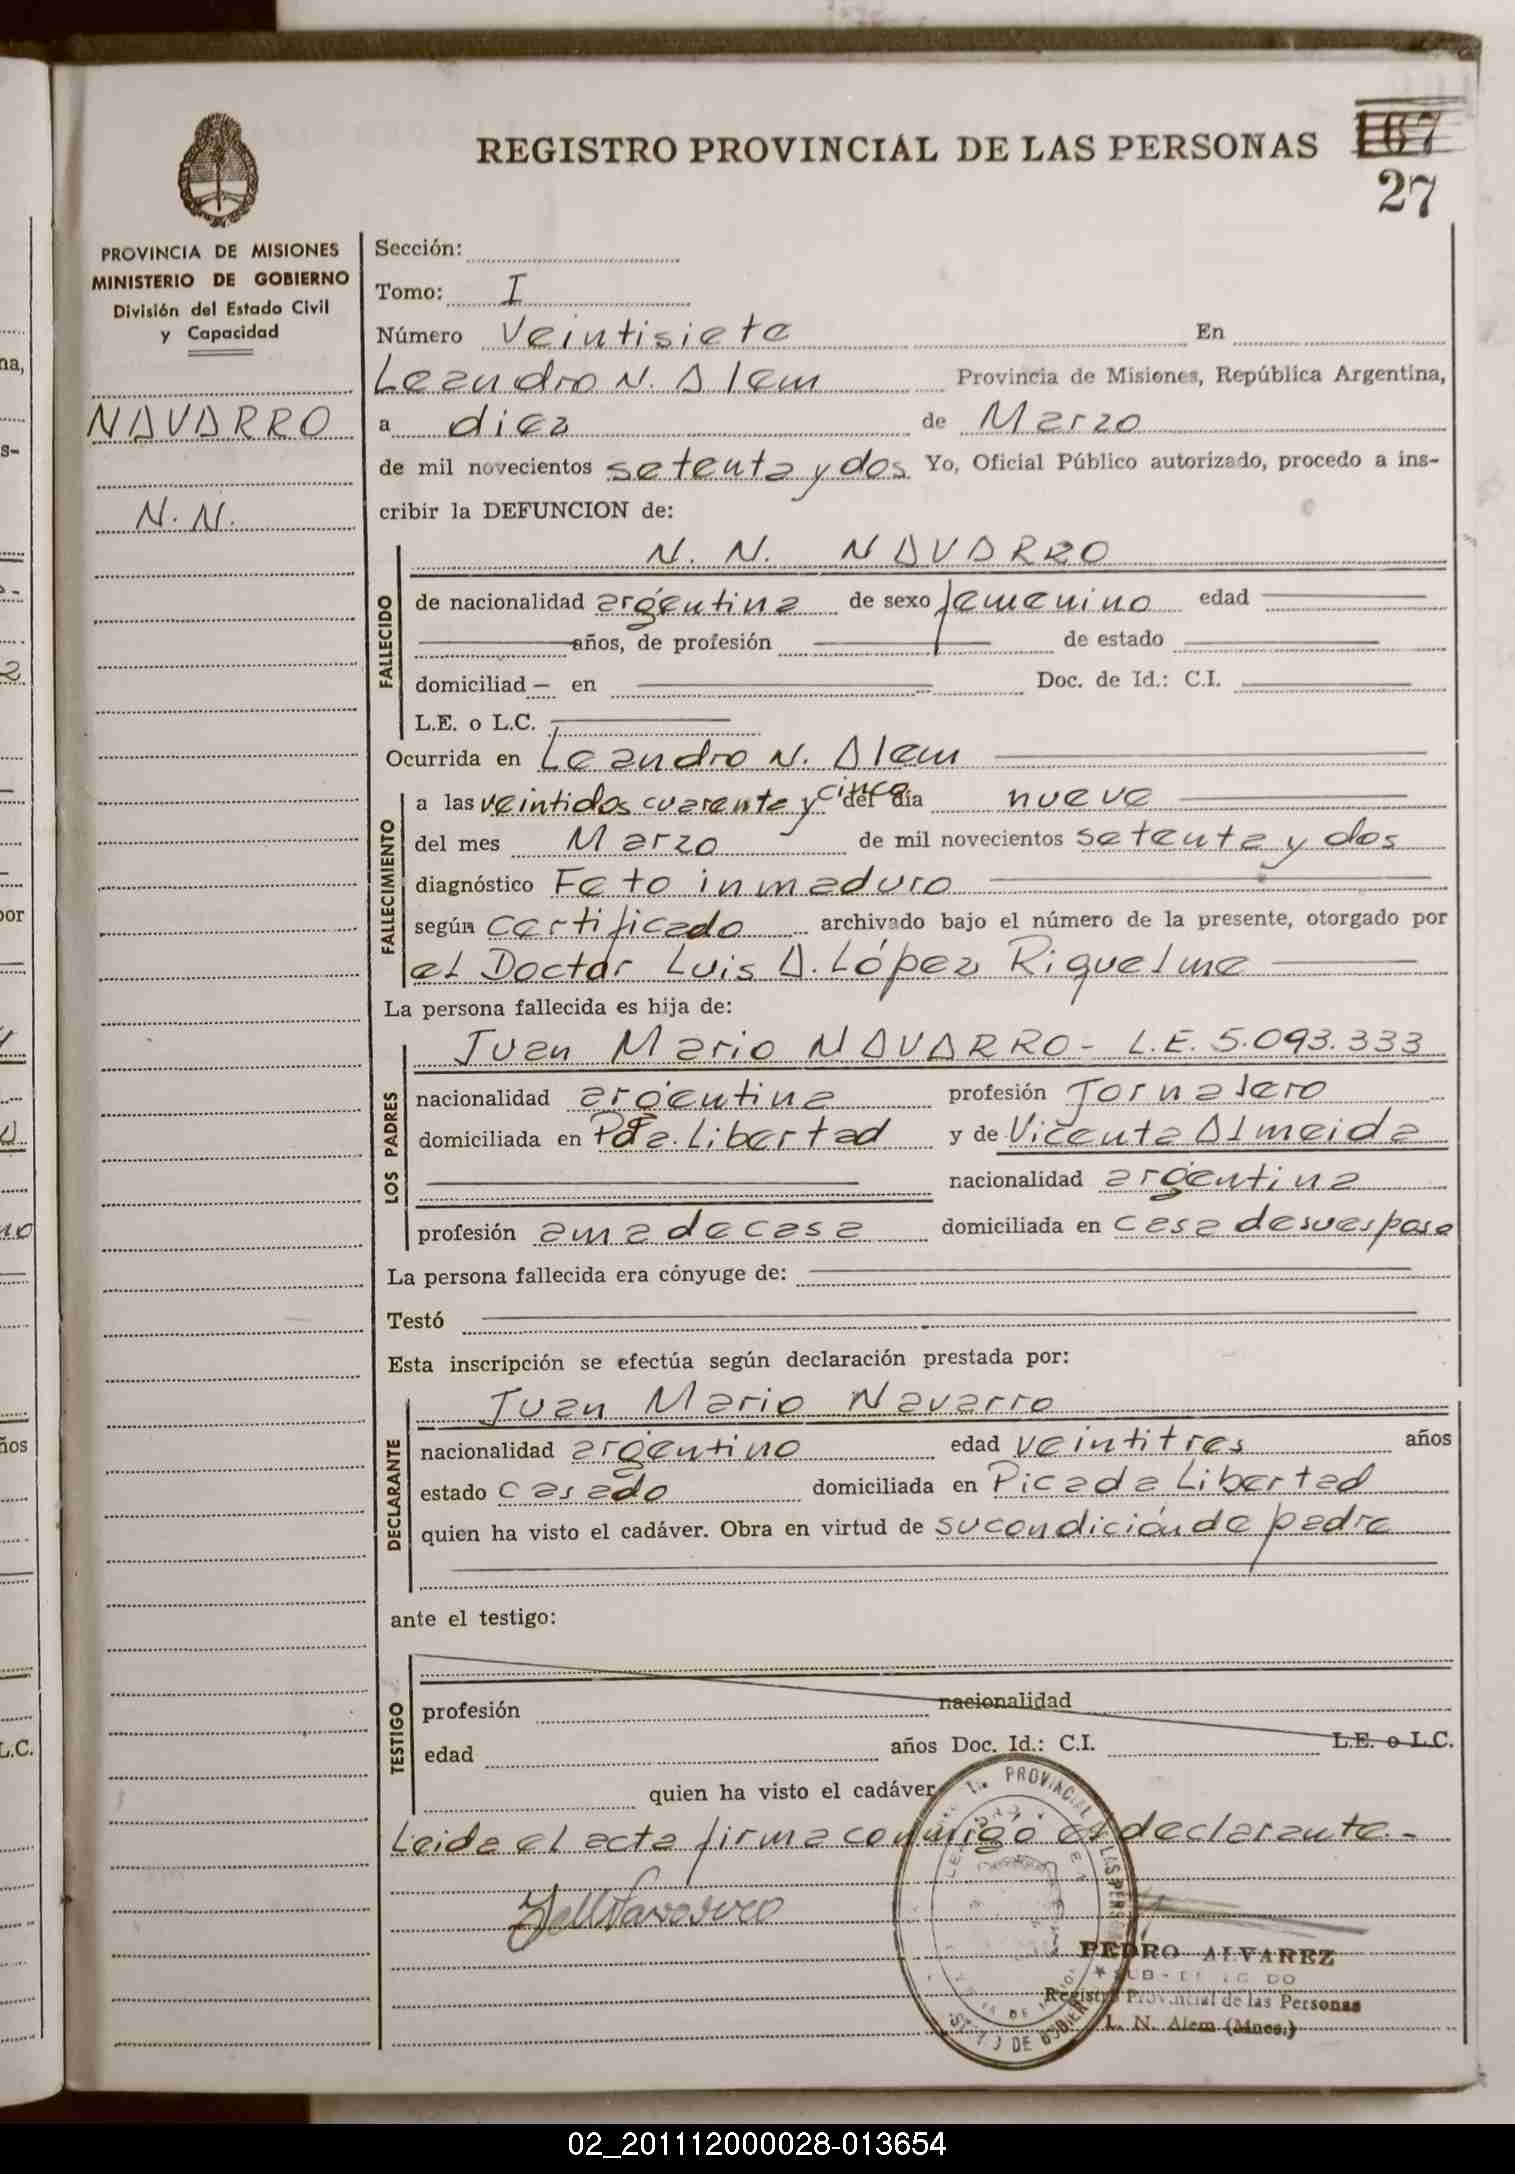 REGISTRO PROVINCIAL DE LAS PERSONAS
167
27
PROVINCIA DE MISIONES
MINISTERIO DE GOBIERNO
División del Estado Civil
y Capacidad
NAVARRO
N. N.
Sección:
Tomo: I
Número Veintisiete En
Leandro N. Alem Provincia de Misiones, República Argentina,
a diez de Marzo
de mil novecientos setenta y dos Yo, Oficial Público autorizado, procedo a ins-
cribir la DEFUNCION de:
FALLECIDO
N. N. NAVARRO
de nacionalidad argentina de sexo femenino edad
años, de profesión de estado
domiciliad — en Doc. de Id.: C.I.
L.E. o L.C.
Ocurrida en Leandro N. Alem
FALLECIMIENTO
a las veintidos cuarenta y cinco del día nueve
del mes Marzo de mil novecientos setenta y dos
diagnóstico Feto inmaduro
según certificado archivado bajo el número de la presente, otorgado por
el Doctor Luis A. López Riquelme
La persona fallecida es hija de:
LOS PADRES
Juan Mario NAVARRO - L.E. 5.093.333
nacionalidad argentina profesión Jornalero
domiciliada en Pda. Libertad y de Vicenta Almeida
nacionalidad argentina
profesión ama de casa domiciliada en casa de su esposo
La persona fallecida era cónyuge de:
Testó
Esta inscripción se efectúa según declaración prestada por:
DECLARANTE
Juan Mario Navarro
nacionalidad argentino edad veintitres años
estado casado domiciliada en Picada Libertad
quien ha visto el cadáver. Obra en virtud de su condición de padre
ante el testigo:
TESTIGO
profesión nacionalidad
edad años Doc. Id.: C.I. L.E. o L.C.
quien ha visto el cadáver
Leida el acta firma conmigo el declarante.-
PROVINCIAL LAS
DE
PEDRO ALVAREZ
Registro Provincial de las Personas
L. N. Alem (Mnes.)
na,
s-
2
por
no
ños
L.C.
02_201112000028-013654